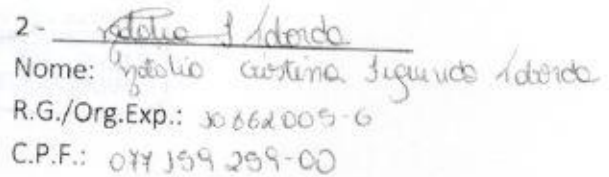 2 - Natalia S Laborda
Nome: Natalia Cristina Siqueira Laborda
R.G./Org.Exp.: 10662005-6
C.P.F.: 077 159 259-00